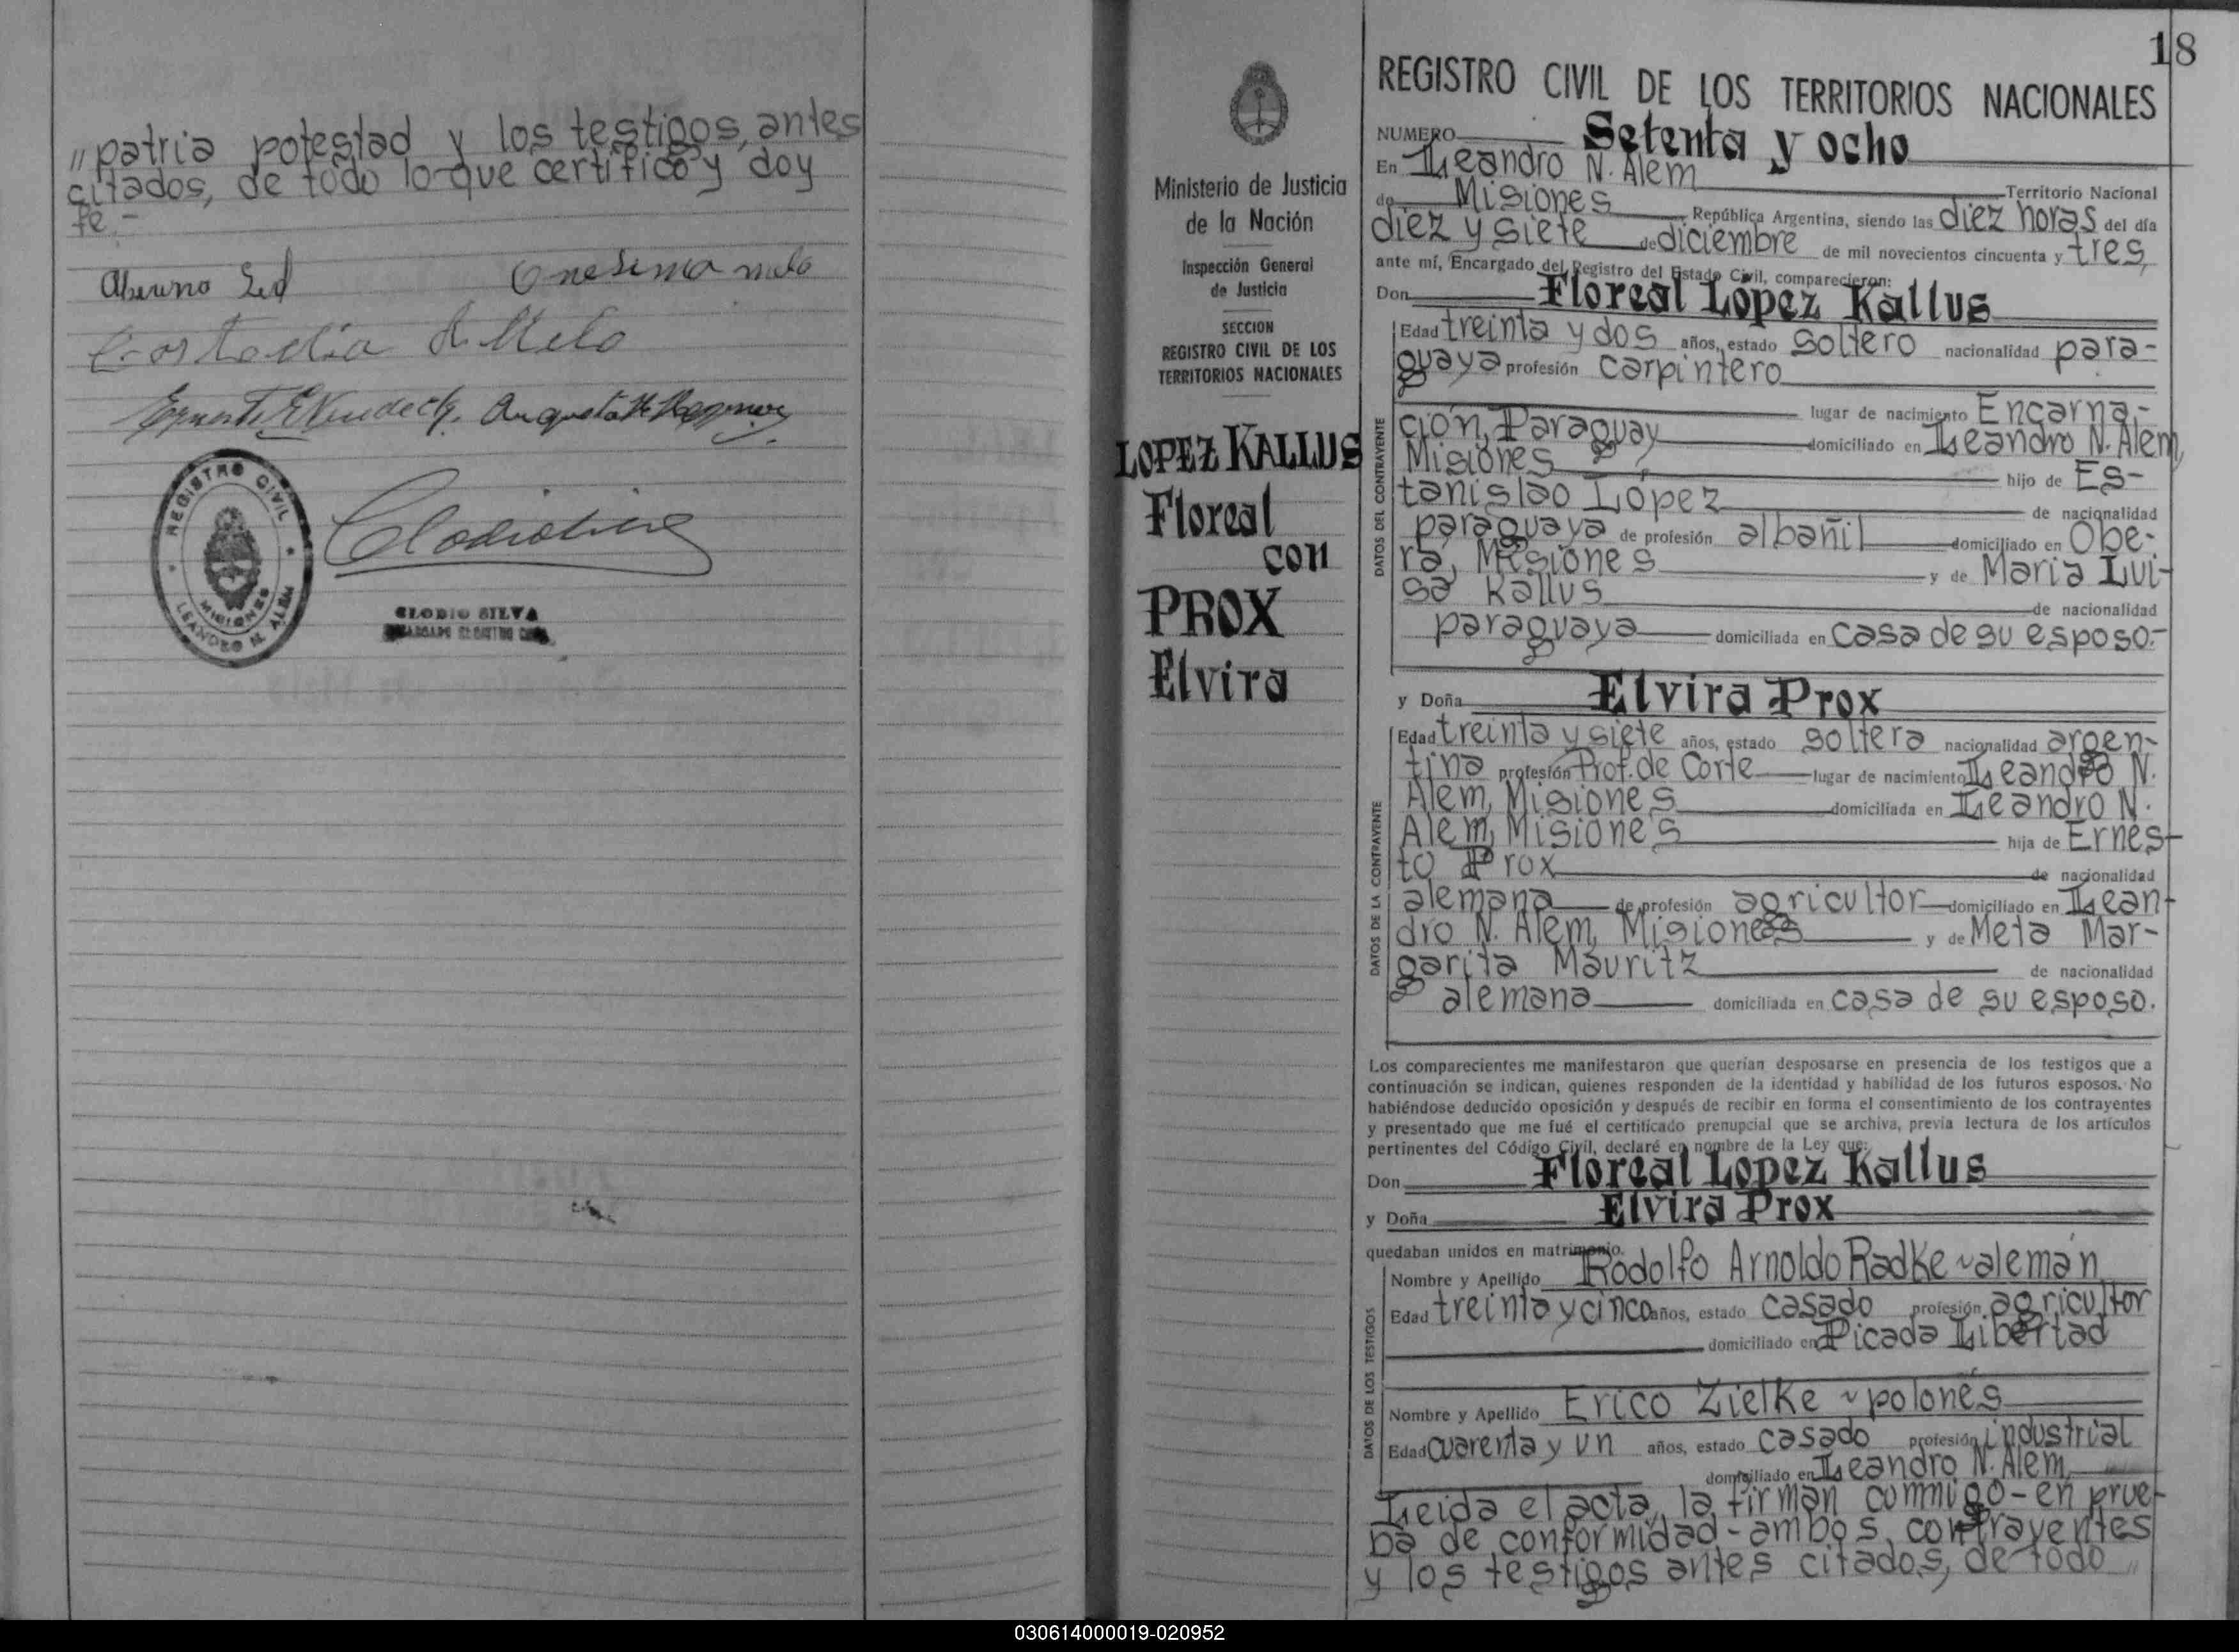 "patria potestad y los testigos, antes
citados, de todo lo que certifico y doy
fe.-
REGISTRO CIVIL
MISIONES
LEANDRO N. ALEM
CLODIO SILVA
18
Ministerio de Justicia
de la Nación
Inspección General
de Justicia
SECCION
REGISTRO CIVIL DE LOS
TERRITORIOS NACIONALES
LOPEZ KALLUS
Floreal
con
PROX
Elvira
REGISTRO CIVIL DE LOS TERRITORIOS NACIONALES
NUMERO Setenta y ocho
En Leandro N. Alem Territorio Nacional
de Misiones República Argentina, siendo las diez horas del día
diez y siete de diciembre de mil novecientos cincuenta y tres,
ante mí, Encargado del Registro del Estado Civil, comparecieron:
Don Floreal Lopez Kallus
DATOS DEL CONTRAYENTE
Edad treinta y dos años, estado soltero nacionalidad para-
guaya profesión carpintero
lugar de nacimiento Encarna-
ción, Paraguay domiciliado en Leandro N. Alem,
Misiones hijo de Es-
tanislao López de nacionalidad
paraguaya de profesión albañil domiciliado en Obe-
rá, Misiones y de Maria Lui-
sa Kallus de nacionalidad
paraguaya domiciliada en casa de su esposo.-
y Doña Elvira Prox
DATOS DE LA CONTRAYENTE
Edad treinta y siete años, estado soltera nacionalidad argen-
tina profesión Prof. de Corte lugar de nacimiento Leandro N.
Alem, Misiones domiciliada en Leandro N.
Alem, Misiones hija de Ernes-
to Prox de nacionalidad
alemana de profesión agricultor domiciliado en Lean-
dro N. Alem, Misiones y de Meta Mar-
garita Mauritz de nacionalidad
alemana domiciliada en casa de su esposo.
Los comparecientes me manifestaron que querían desposarse en presencia de los testigos que a
continuación se indican, quienes responden de la identidad y habilidad de los futuros esposos. No
habiéndose deducido oposición y después de recibir en forma el consentimiento de los contrayentes
y presentado que me fué el certificado prenupcial que se archiva, previa lectura de los artículos
pertinentes del Código Civil, declaré en nombre de la Ley que:
Don Floreal Lopez Kallus
y Doña Elvira Prox
quedaban unidos en matrimonio.
DATOS DE LOS TESTIGOS
Nombre y Apellido Rodolfo Arnoldo Radke ~ alemán
Edad treinta y cinco años, estado casado profesión agricultor
domiciliado en Picada Libertad
Nombre y Apellido Erico Zielke ~ polonés
Edad cuarenta y un años, estado casado profesión industrial
domiciliado en Leandro N. Alem
Leida el acta, la firman conmigo - en prue-
ba de conformidad - ambos contrayentes
y los testigos antes citados, de todo "
030614000019-020952